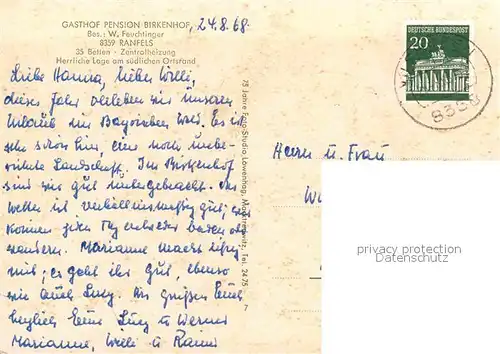 GASTHOF PENSION BIRKENHOF,
Bes.: W. Feuchtinger
8359 RANFELS
35 Betten - Zentralheizung
Herrliche Lage am südlichen Ortsrand
24.8.68
Liebe Hanna, lieber Willi,
dieses Jahr verleben wir unseren
Urlaub im Bayrischen Wald. Es ist
sehr schön hier, eine noch unbe-
rührte Landschaft. Im Birkenhof
sind wir gut untergebracht. Das
Wetter ist verhältnismäßig gut, wir
können jeden Tag entweder baden oder
wandern. Marianne macht eifrig
mit, es geht ihr gut, ebenso
wie auch Lucy. Es grüßen Euch
herzlich Eure Lucy u. Werner
Marianne, Willi u. Rainer
75 Jahre Foto-Studio Löwenhag, Tel. 24 75
7
DEUTSCHE BUNDESPOST
20
8359
Herrn u. Frau
privacy protection